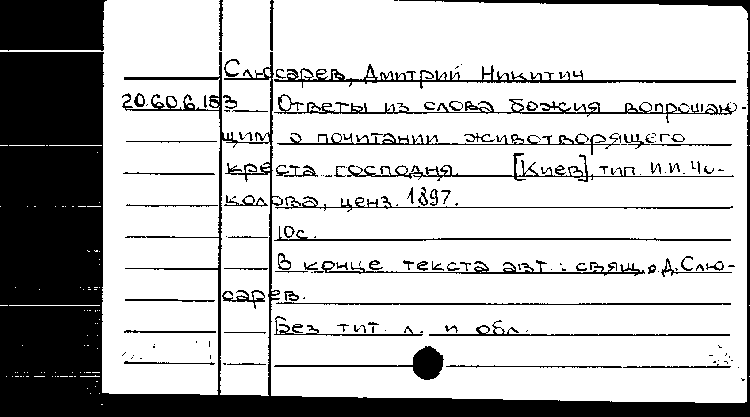 Слюсарев, Дмитрий Никитич
20.60.6.183 Ответы из слова божия вопрошаю-
щим о почитании животворящего
креста господня. [Киев], тип. И.И. Чо-
колова, ценз. 1897.
10с.
В конце текста авт.: свящ. Д. Слю-
сарев.
Без тит. л. и обл.